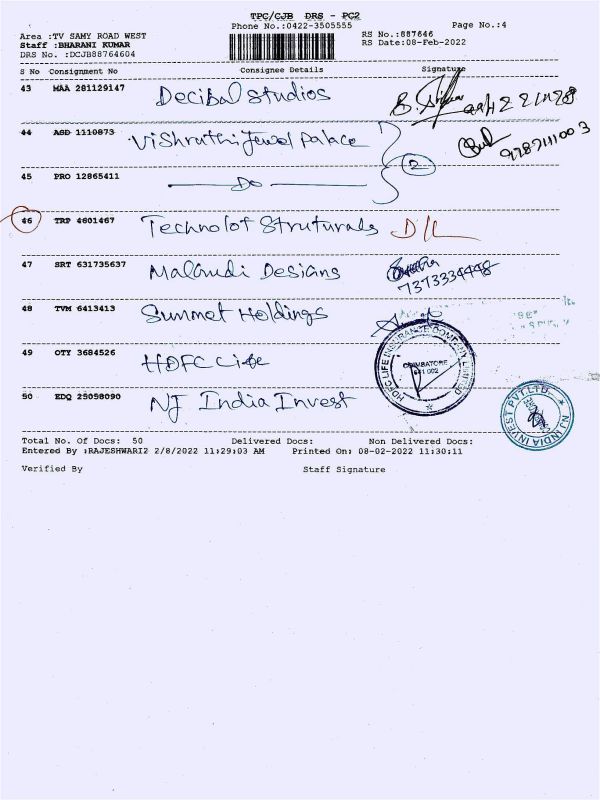 TPC/CJB DRS - PC2
Phone No.:0422-3505555
Page No.:4
Area :TV SAMY ROAD WEST
RS No.:887646
Staff :BHARANI KUMAR
RS Date:08-Feb-2022
DRS No. :DCJB88764604
S No Consignment No Consignee Details Signature
43 MAA 281129147 Decibal Studios
44 ASD 1110873 Vishruthi Jewel Palace
2
9787111003
45 PRO 12865411 Do
46 TRP 4601467 Technolot Struturals D/L
47 SRT 631735637 Malandi Designs
7373334448
48 TVM 6413413 Summet Holdings
49 OTY 3684526 HDFC Life
HDFC LIFE INSURANCE COMPANY LIMITED
COIMBATORE
641 002
50 EDQ 25058090 NJ India Invest
NJ INDIA INVEST PVT.LTD.
Total No. Of Docs: 50 Delivered Docs: Non Delivered Docs:
Entered By :RAJESHWARI2 2/8/2022 11:29:03 AM Printed On: 08-02-2022 11:30:11
Verified By Staff Signature